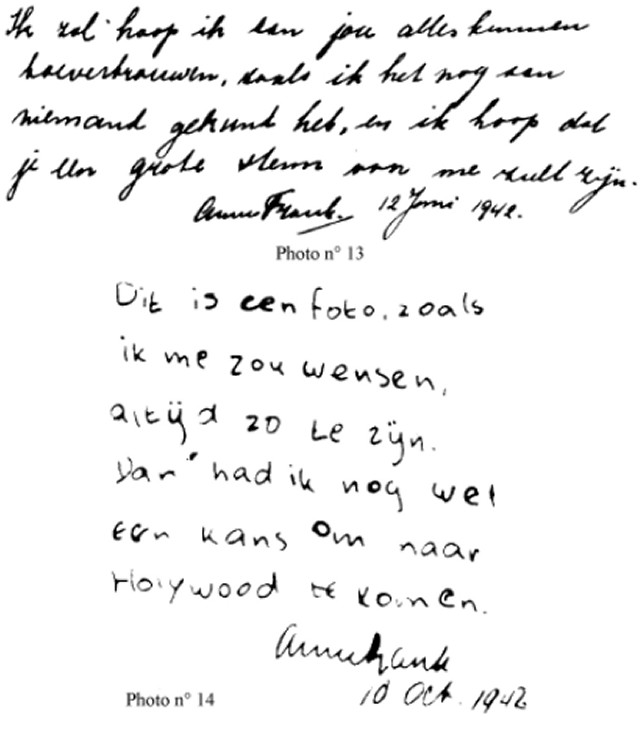 Ik zal hoop ik aan jou alles kunnen
toevertrouwen, zoals ik het nog aan
niemand gekund heb, en ik hoop dat
je een grote steun van me zult zijn.
Anne Frank. 12 Juni 1942.
Photo n° 13
Dit is een foto, zoals
ik me zou wensen,
altijd zo te zijn.
Dan had ik nog wel
een kans om naar
Holywood te komen.
Annefrank
10 Oct. 1942
Photo n° 14